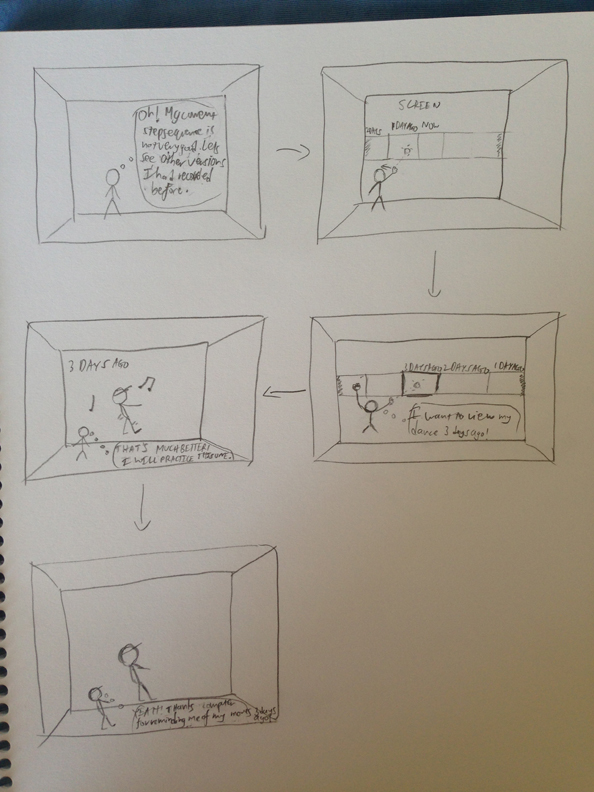 Oh! My current
step sequence is
not very good. Lets
see other versions
I had recorded
before.
SCREEN
1 DAY AGO NOW
3 DAYS AGO 2 DAYS AGO 1 DAY AGO
I want to view my
dance 3 days ago!
3 DAYS AGO
THAT'S MUCH BETTER!
I WILL PRACTICE
YEAH! thanks computer
for reminding me of my moves 3 days
ago!